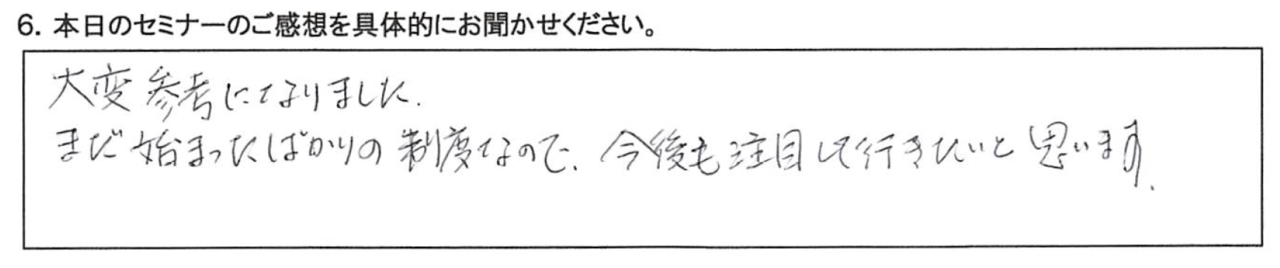 6. 本日のセミナーのご感想を具体的にお聞かせください。
大変参考になりました.
まだ始まったばかりの制度なので、今後も注目して行きたいと思います.